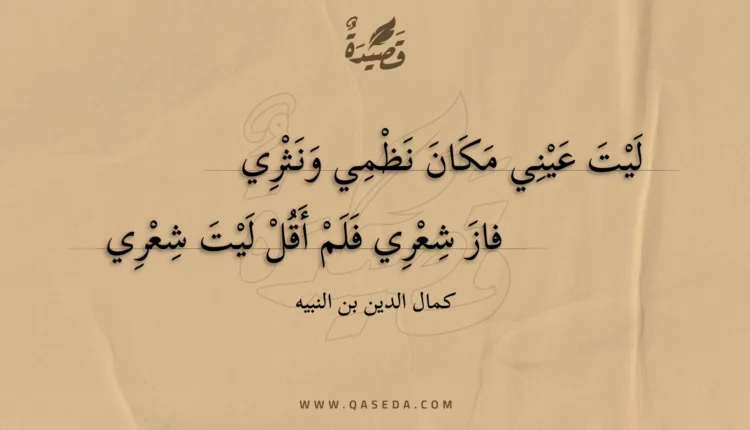 قَصِيْدَةٌ
لَيْتَ عَيْنِي مَكَانَ نَظْمِي وَنَثْرِي
فازَ شِعْرِي فَلَمْ أَقُلْ لَيْتَ شِعْرِي
كمال الدين بن النبيه
WWW.QASEDA.COM